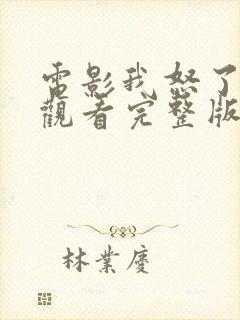 電影我怒了
觀看完整版
林業慶